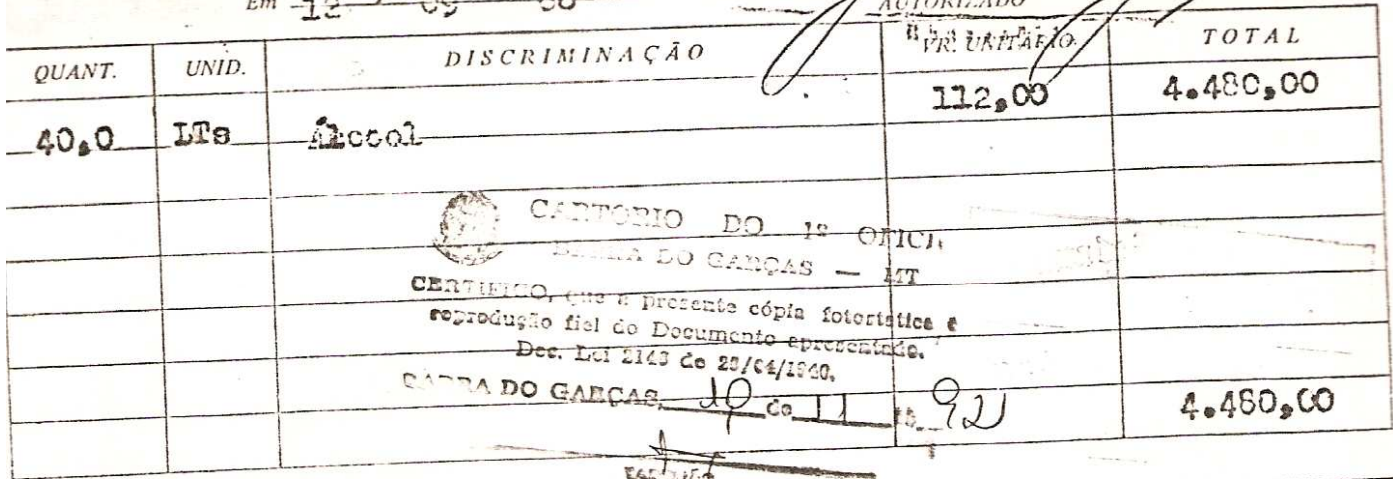 Em 12
AUTORIZADO
QUANT. UNID. DISCRIMINAÇÃO PR. UNITÁRIO TOTAL
112,00 4.480,00
40,0 LTs Álcool
CARTORIO DO 1º OFICI
BARRA DO GARÇAS — MT
CERTIFICO, que a presente cópia fotostática é
reprodução fiel do Documento apresentado.
Dec. Lei 2148 de 
BARRA DO GARÇAS, 19 de 11 92
4.480,00